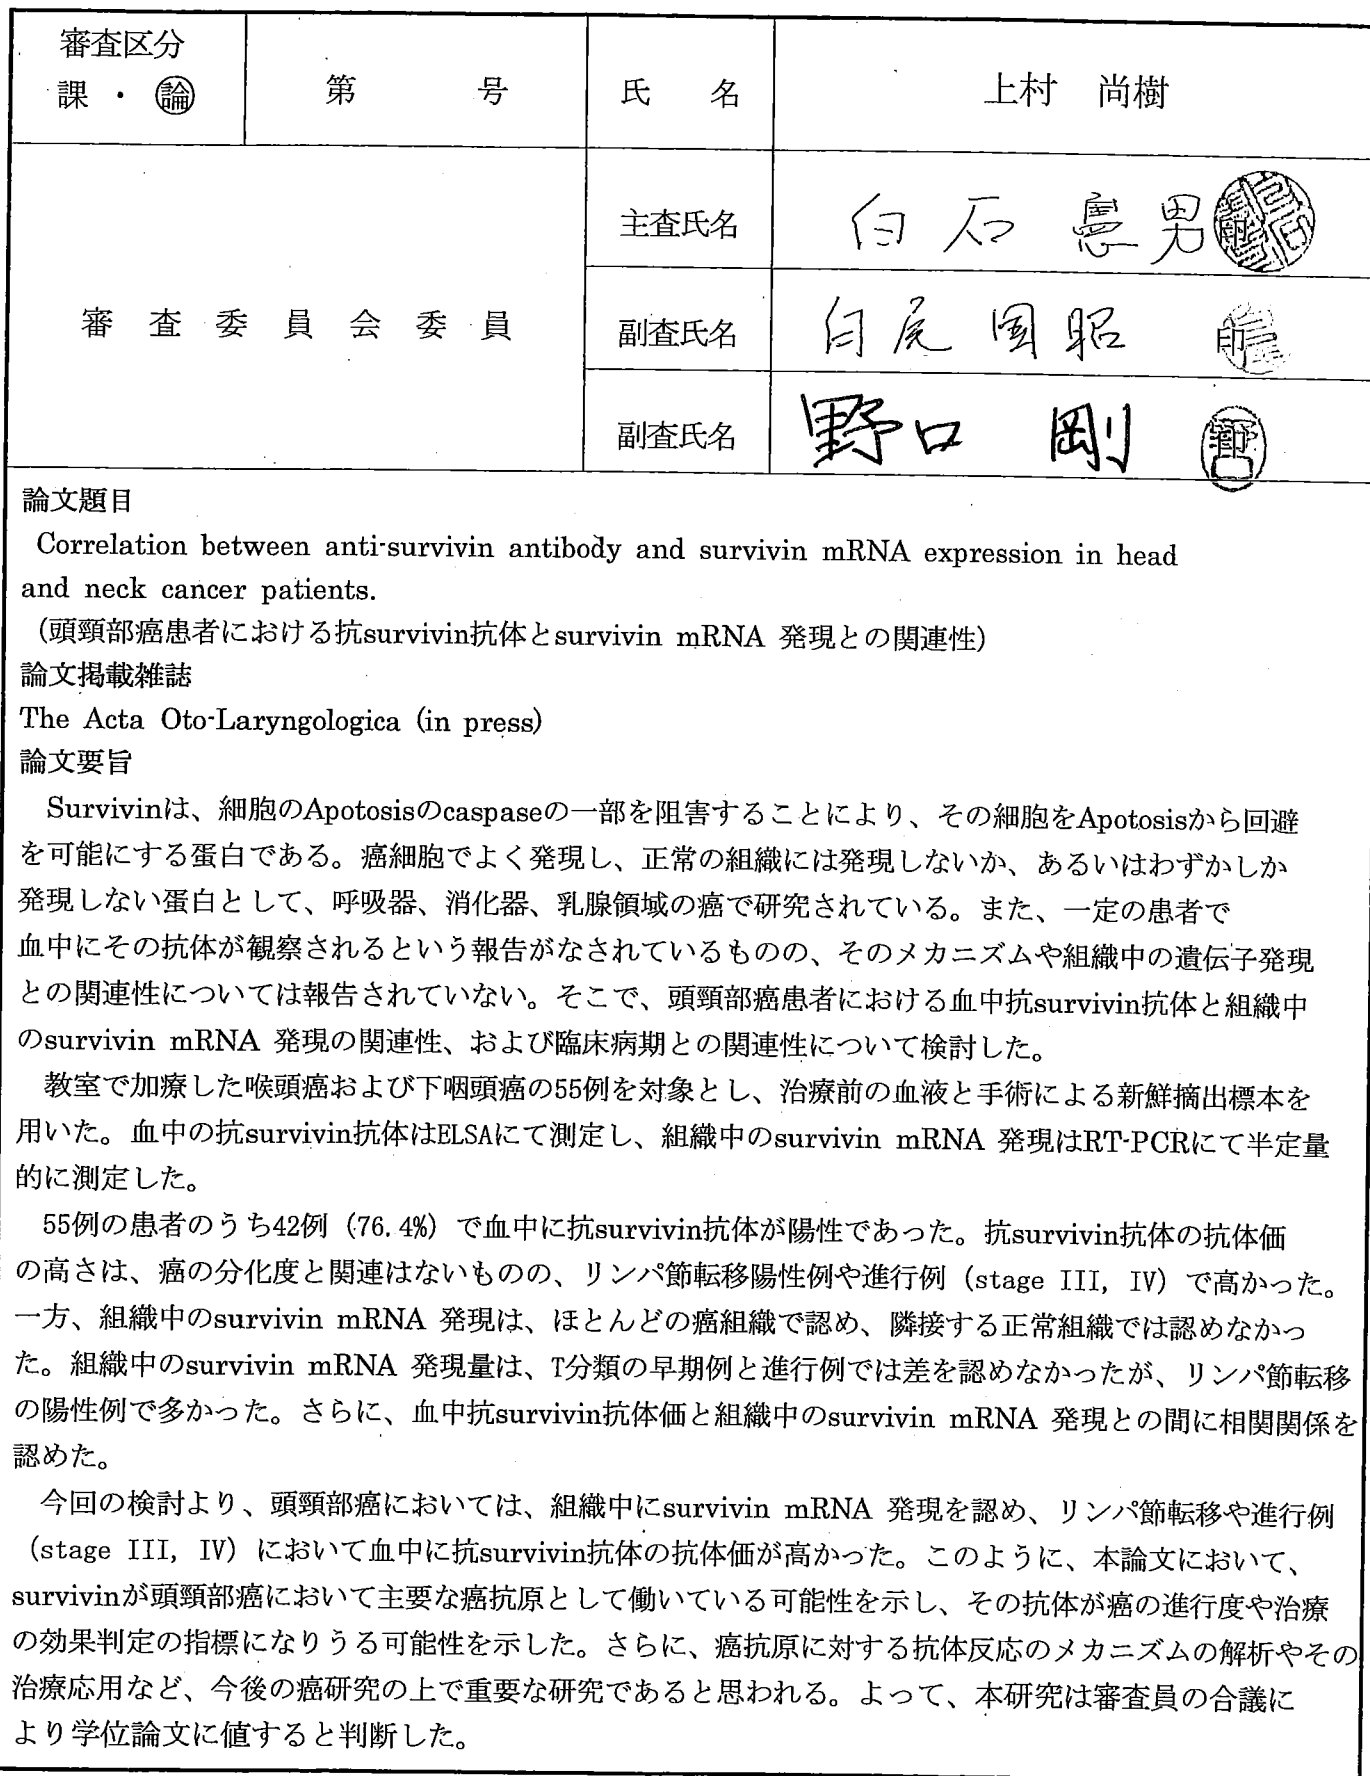 審査区分
課 ・ 論
第 号
氏 名
上村 尚樹
審 査 委 員 会 委 員
主査氏名
白石 憲男
印
副査氏名
白尾 国昭
印
副査氏名
野口 剛
印
論文題目
Correlation between anti-survivin antibody and survivin mRNA expression in head
and neck cancer patients.
(頭頸部癌患者における抗survivin抗体とsurvivin mRNA 発現との関連性)
論文掲載雑誌
The Acta Oto-Laryngologica (in press)
論文要旨
Survivinは、細胞のApotosisのcaspaseの一部を阻害することにより、その細胞をApotosisから回避
を可能にする蛋白である。癌細胞でよく発現し、正常の組織には発現しないか、あるいはわずかしか
発現しない蛋白として、呼吸器、消化器、乳腺領域の癌で研究されている。また、一定の患者で
血中にその抗体が観察されるという報告がなされているものの、そのメカニズムや組織中の遺伝子発現
との関連性については報告されていない。そこで、頭頸部癌患者における血中抗survivin抗体と組織中
のsurvivin mRNA 発現の関連性、および臨床病期との関連性について検討した。
教室で加療した喉頭癌および下咽頭癌の55例を対象とし、治療前の血液と手術による新鮮摘出標本を
用いた。血中の抗survivin抗体はELSAにて測定し、組織中のsurvivin mRNA 発現はRT-PCRにて半定量
的に測定した。
55例の患者のうち42例（76.4%）で血中に抗survivin抗体が陽性であった。抗survivin抗体の抗体価
の高さは、癌の分化度と関連はないものの、リンパ節転移陽性例や進行例（stage III, IV）で高かった。
一方、組織中のsurvivin mRNA 発現は、ほとんどの癌組織で認め、隣接する正常組織では認めなかっ
た。組織中のsurvivin mRNA 発現量は、T分類の早期例と進行例では差を認めなかったが、リンパ節転移
の陽性例で多かった。さらに、血中抗survivin抗体価と組織中のsurvivin mRNA 発現との間に相関関係を
認めた。
今回の検討より、頭頸部癌においては、組織中にsurvivin mRNA 発現を認め、リンパ節転移や進行例
（stage III, IV）において血中に抗survivin抗体の抗体価が高かった。このように、本論文において、
survivinが頭頸部癌において主要な癌抗原として働いている可能性を示し、その抗体が癌の進行度や治療
の効果判定の指標になりうる可能性を示した。さらに、癌抗原に対する抗体反応のメカニズムの解析やその
治療応用など、今後の癌研究の上で重要な研究であると思われる。よって、本研究は審査員の合議に
より学位論文に値すると判断した。